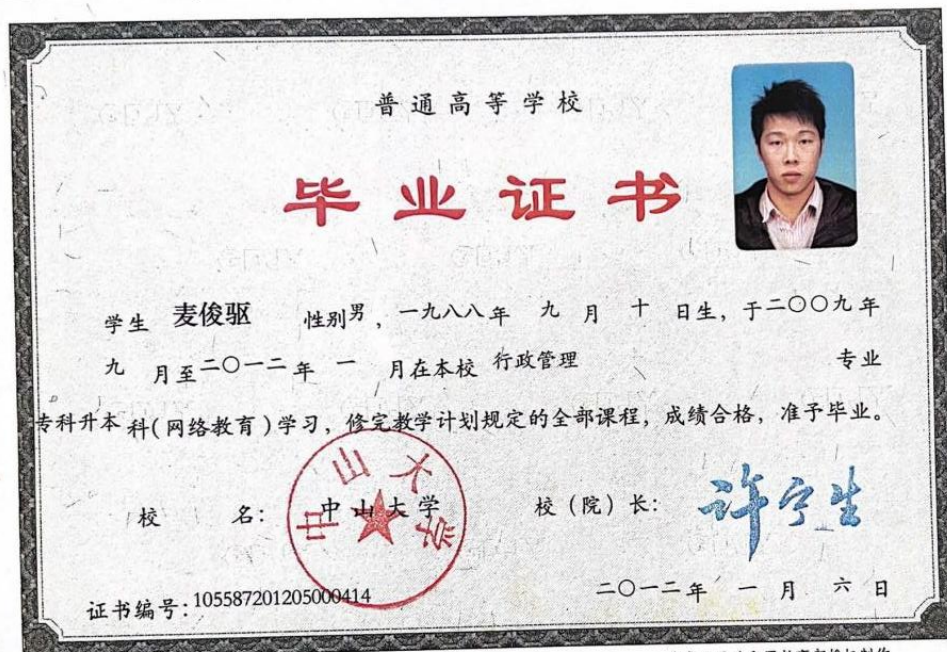 普通高等学校
毕业证书
学生 麦俊驱 性别 男，一九八八年 九 月 十 日生，于二〇〇九年
九 月至二〇一二年 一 月在本校 行政管理 专业
专科升本科(网络教育)学习，修完教学计划规定的全部课程，成绩合格，准予毕业。
校 名：中山大学 校（院）长：许宁生
中山大学
二〇一二年 一 月 六 日
证书编号：105587201205000414